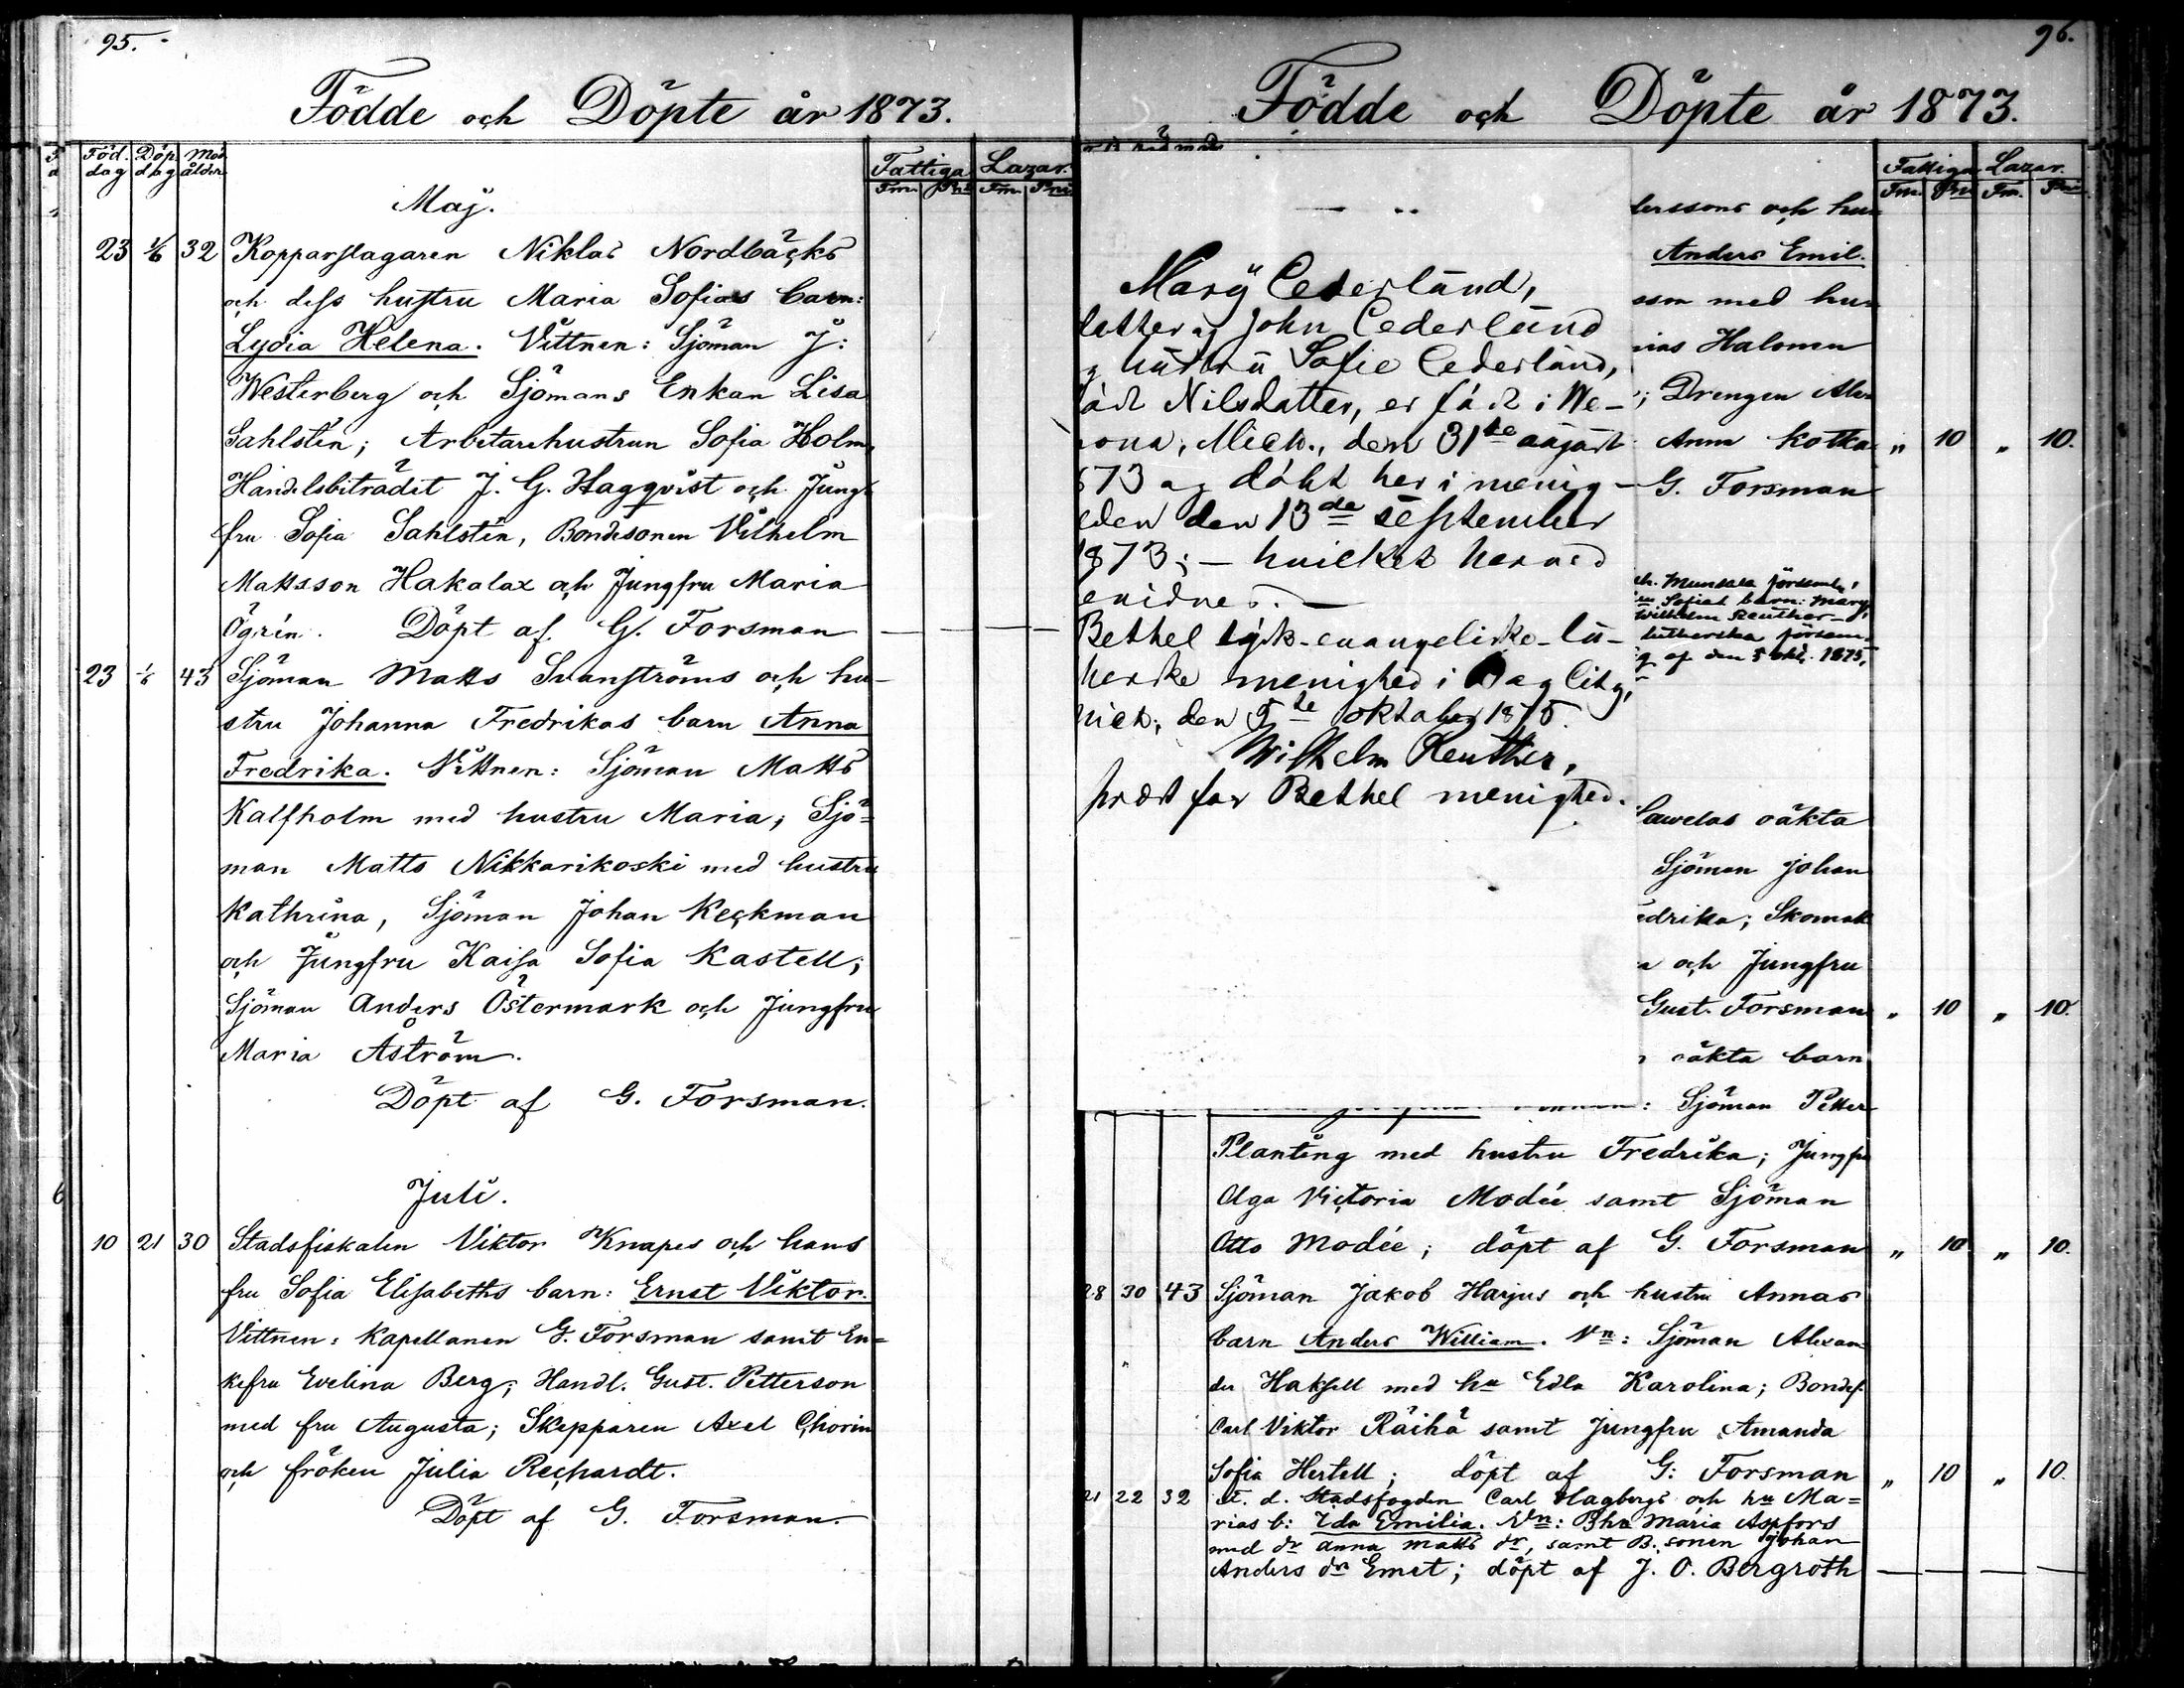 95.
Födde och Döpte år 1873.
Föd. dag Döp. dag Mod. ålder Fattiga Lazar.
Fm. Pni Fm. Pni
Maj.
23 1/6 32 Kopparslagaren Niklas Nordbäcks
och dess hustru Maria Sofias barn:
Lydia Helena. Vittnen: Sjöman J:
Westerberg och Sjömans Enkan Lisa
Sahlstén; Arbetarehustrun Sofia Holm,
Handelsbiträdet J. G. Hagqvist och Jung-
fru Sofia Sahlstén, Bondesonen Vilhelm
Mattsson Hakalax och Jungfru Maria
Ögrén. Döpt af G. Forsman
23 1/6 43 Sjöman Matts Svanströms och hu-
stru Johanna Fredrikas barn Anna
Fredrika. Vittnen: Sjöman Matts
Kalfholm med hustru Maria; Sjö=
man Matts Nikkarikoski med hustru
Kathrina, Sjöman Johan Keckman
och Jungfru Kaisa Sofia Kastell;
Sjöman Anders Östermark och Jungfru
Maria Åström.
Döpt af G. Forsman.
Juli.
10 21 30 Stadsfiskalen Viktor Knapes och hans
fru Sofia Elisabeths barn: Ernst Viktor.
Vittnen: Kapellanen G. Forsman samt En=
kefru Evelina Berg; Handl. Gust. Petterson
med fru Augusta; Skepparen Axel Chorin
och fröken Julia Rechardt.
Döpt af G. Forsman.
96.
Födde och Döpte år 1873.
Fattiga Lazar.
Fm. Pni Fm. Pni
Mary Cederlund,
datter af John Cederlund
og hustru Sofie Cederlund,
föd Nilsdatter, er föd i We-
nona, Mich., den 31te augüst
873 og döbt her i menig-
eden den 13de september
1873; — hvilket herved
evidnes.—
Bethel lyth-evangeliske-lu-
herske menighed i Bay City,
Mich, den 5te oktober 1875.
Wilhelm Reuther,
præst for Bethel menighed.
derssons och hu-
Anders Emil.
sson med hu-
nias Halonen
; Drengen Alex
Anna Kotka „ 10 „ 10.
G. Forsman
ch. Munsala församl.
Sofias barn: Mary,
Wilhelm Reuther
lutherska försam-
g af den 5 okt. 1875.
Pawelas oäkta
Sjöman Johan
edrika; Skomak
a och Jungfru
Gust. Forsman „ 10 „ 10.
oäkta barn
: Sjöman Petter
Planting med hustru Fredrika; Jungfru
Olga Victoria Modée samt Sjöman
Otto Modée; döpt af G. Forsman „ 10 „ 10.
28 30 43 Sjöman Jakob Harjus och hustru Annas
barn Anders William. Vn: Sjöman Alexan
der Haksell med hu Edla Karolina; Bondes.
Carl Viktor Räihä samt Jungfru Amanda
Sofia Hertell; döpt af G: Forsman „ 10 „ 10.
21 22 32 F. d. Stadsfogden Carl Hagbergs och hu Ma=
rias b: Ida Emilia. Vn: Bhu Maria Aspfors
med dr Anna Matts dr, samt B. sonen Johan
Anders dr Emet; döpt af J. O. Bergroth